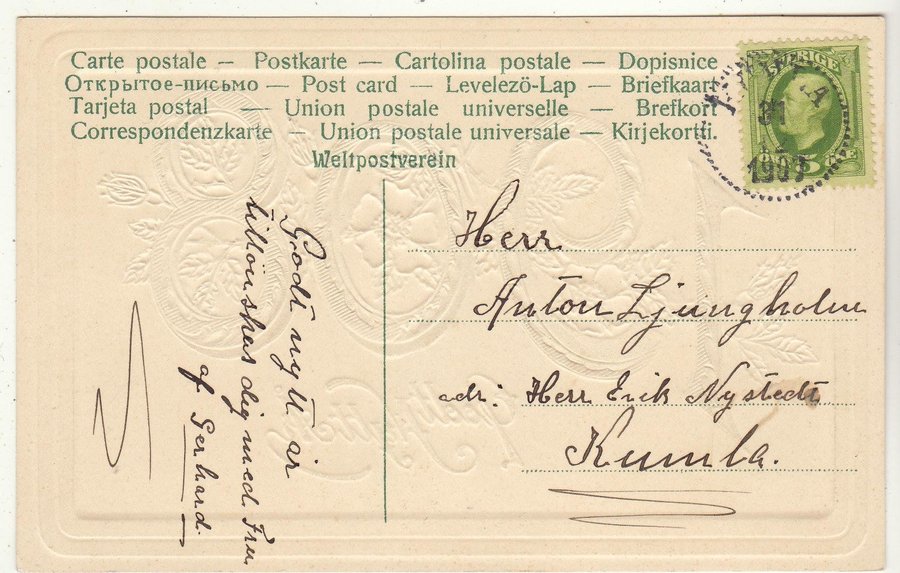 Carte postale — Postkarte — Cartolina postale — Dopisnice
Открытое-письмо — Post card — Levelezö-Lap — Briefkaart
Tarjeta postal — Union postale universelle — Brefkort
Correspondenzkarte — Union postale universale — Kirjekortti.
Weltpostverein
SVERIGE
31
12
1907
5
Herr
Anton Ljungholm
adr: Herr Erik Nystedt
Kumla.
Godt nytt år
tillönskas dig med Fru
af Gerhard.